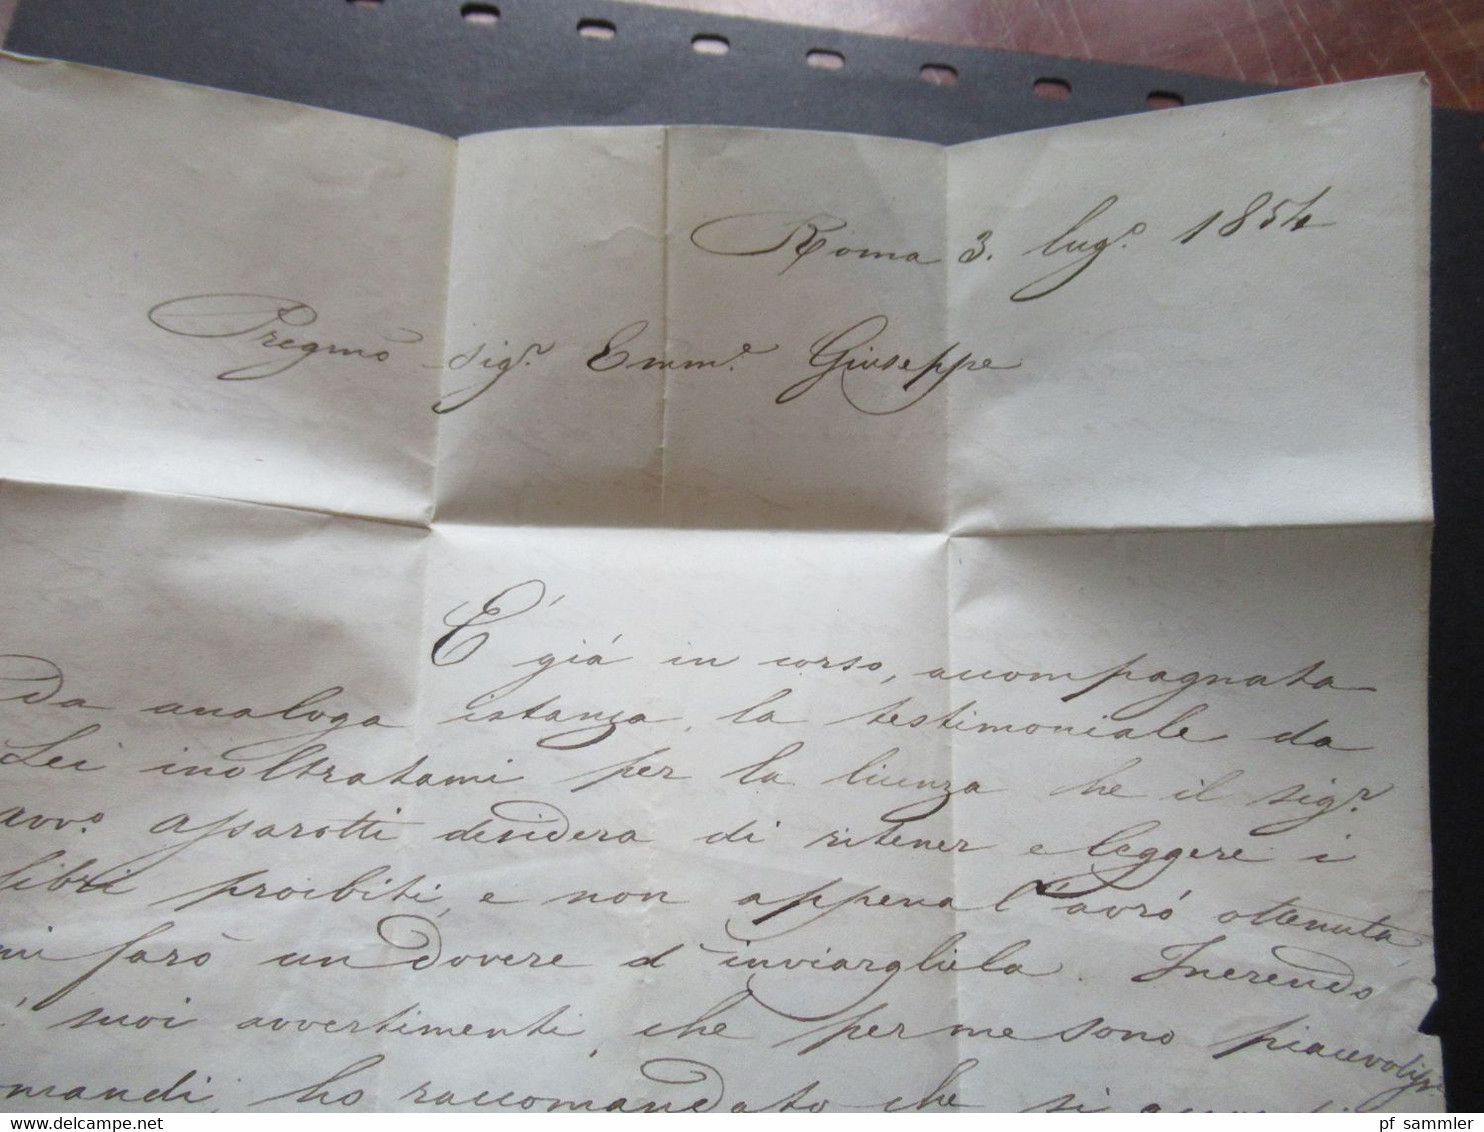 Roma 3. lug.o 1854
Pregmo sig.r Emm.e Giuseppe
E' già in corso, accompagnata
Da analoga istanza, la testimoniale da
Lei inoltratami per la licenza che il sig.r
avv.o Apsarotti desidera di ritener e leggere i
libri proibiti, e non appena l'avrò ottenuta,
mi farò un dovere d'inviargliela. Inerendo
suoi avvertimenti, che per me sono
mandi, ho raccomandato che si
www.delcampe.net
pf_sammler